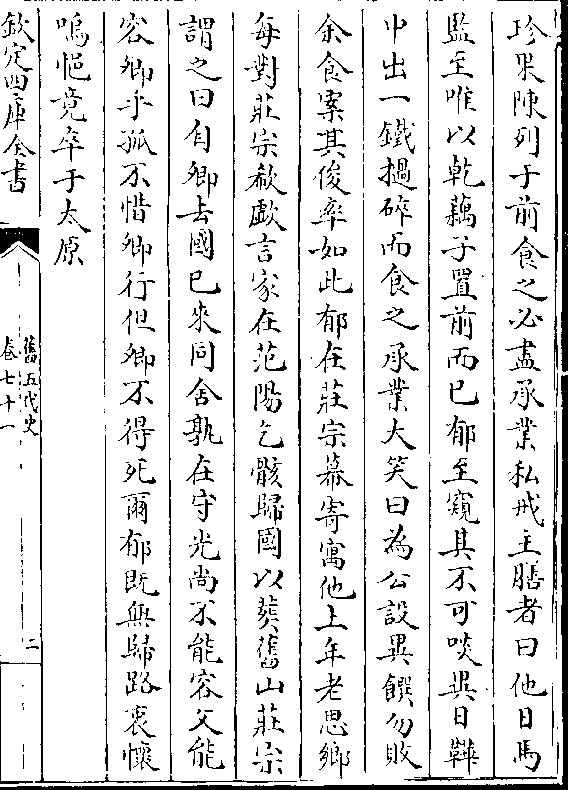 珍果陳列于前食之必盡承業私戒主膳者曰他日馬
監至唯以乾藕子置前而已郁至窺其不可啖異日鞾
中出一鐵撾碎而食之承業大笑曰為公設異饌勿敗
余食案其俊率如此郁在莊宗幕寄寓他土年老思鄉
每對莊宗欷歔言家在范陽乞骸歸國以葬舊山莊宗
謂之曰自卿去國已來同舍孰在守光尚不能容父能
容卿乎孤不惜卿行但卿不得死爾郁既無歸路衷懷
嗚悒竟卒于太原
欽定四庫全書
舊五代史
卷七十一
二